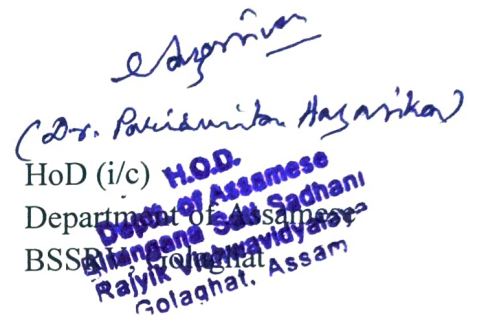 (Dr. Hazarika)
HoD (i/c)
Department of Assamese
BSSRV, Golaghat
H.O.D.
Deptt. of Assamese
Birangana Sati Sadhani
Rajyik Vishwavidyalaya
Golaghat, Assam